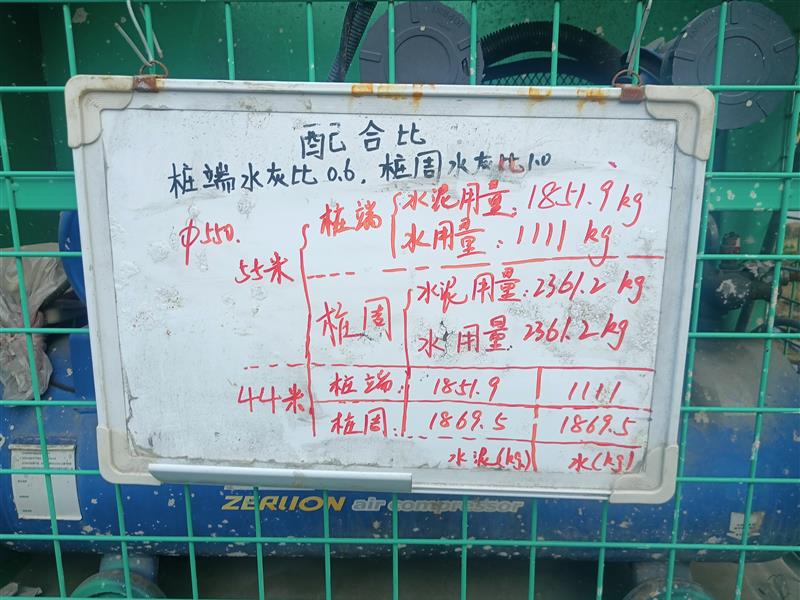 配合比
桩端水灰比0.6，桩周水灰比1.0
φ550.
55米
桩端
水泥用量：1851.9kg
水用量：1111kg
桩周
水泥用量：2361.2kg
水用量：2361.2kg
44米
桩端： 1851.9 1111
桩周： 1869.5 1869.5
水泥(kg) 水(kg)
ZERLION air compressor